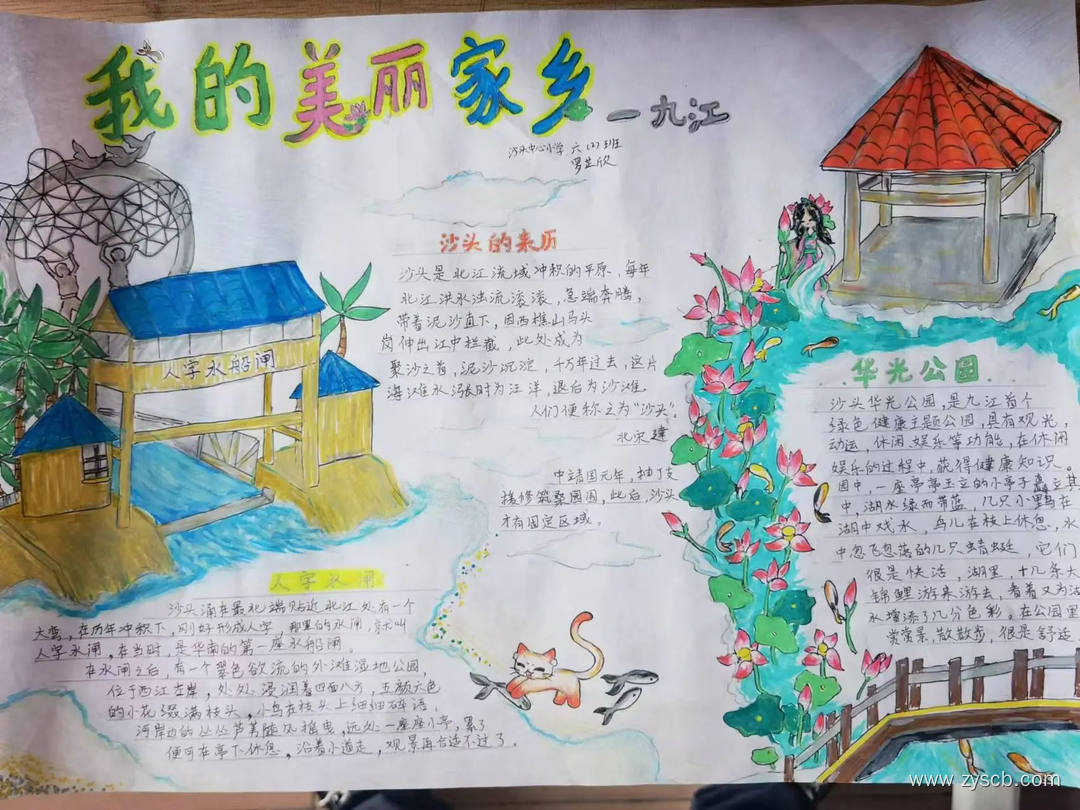 我的美丽家乡
一九江
沙头中心小学 六(2)班
沙头的来历
沙头是北江流域冲积的平原，每年
北江洪水浊流滚滚，急湍奔腾，
带着泥沙直下，因西樵山马头
岗伸出江中拦截，此处成为
聚沙之首，泥沙沉淀，千万年过去，这片
海滩水涨时为汪洋，退后为沙滩。
人们便称之为“沙头”。
北宋建
中靖国元年，
接修筑桑园围，此后，沙头
才有固定区域。
人字水船闸
人字水闸
沙头涌在最北端贴近北江处有一个
大弯，在历年冲积下，刚好形成人字，那里的水闸，就叫
人字水闸。在当时，是华南的第一座水船闸。
在水闸之后，有一个翠色欲流的外滩湿地公园，
位于西江左岸，处处浸润着四面八方，五颜六色
的小花缀满枝头，小鸟在枝头上细细碎语。
河岸边的丛丛芦苇随风摇曳，远处一座座小亭，累了
便可在亭下休息。沿着小道走，观景再合适不过了。
华光公园
沙头华光公园，是九江首个
绿色健康主题公园，具有观光，
动运，休闲，娱乐等功能，在休闲
娱乐的过程中，获得健康知识。
园中，一座亭亭玉立的小亭子矗立其
中，湖水绿而带蓝，几只小野鸟在
湖中戏水，鸟儿在枝上休息，水
中忽飞忽落的几只蜻蜓，它们
很是快活，湖里，十几条大
锦鲤游来游去，看着又为湖
水增添了几分色彩。在公园里
赏赏景，散散步，很是舒适
www.zyscb.com